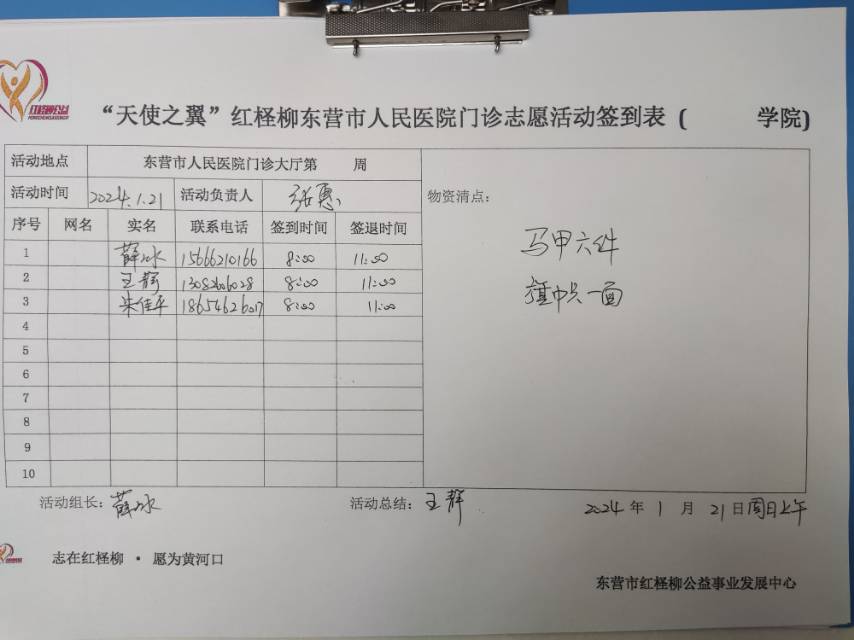 红柽柳公益
“天使之翼”红柽柳东营市人民医院门诊志愿活动签到表( 学院)
活动地点 东营市人民医院门诊大厅第 周
活动时间 2024.1.21 活动负责人
物资清点:
序号 网名 实名 联系电话 签到时间 签退时间
马甲六件
1 薛冰 15666210166 8:00 11:00
2 王群 13082606028 8:00 11:00
旗帜一面
3 朱佳平 18654626017 8:00 11:00
4
5
6
7
8
9
10
活动组长: 薛冰 活动总结: 王群 2024 年 1 月 21 日周日上午
志在红柽柳 · 愿为黄河口
东营市红柽柳公益事业发展中心